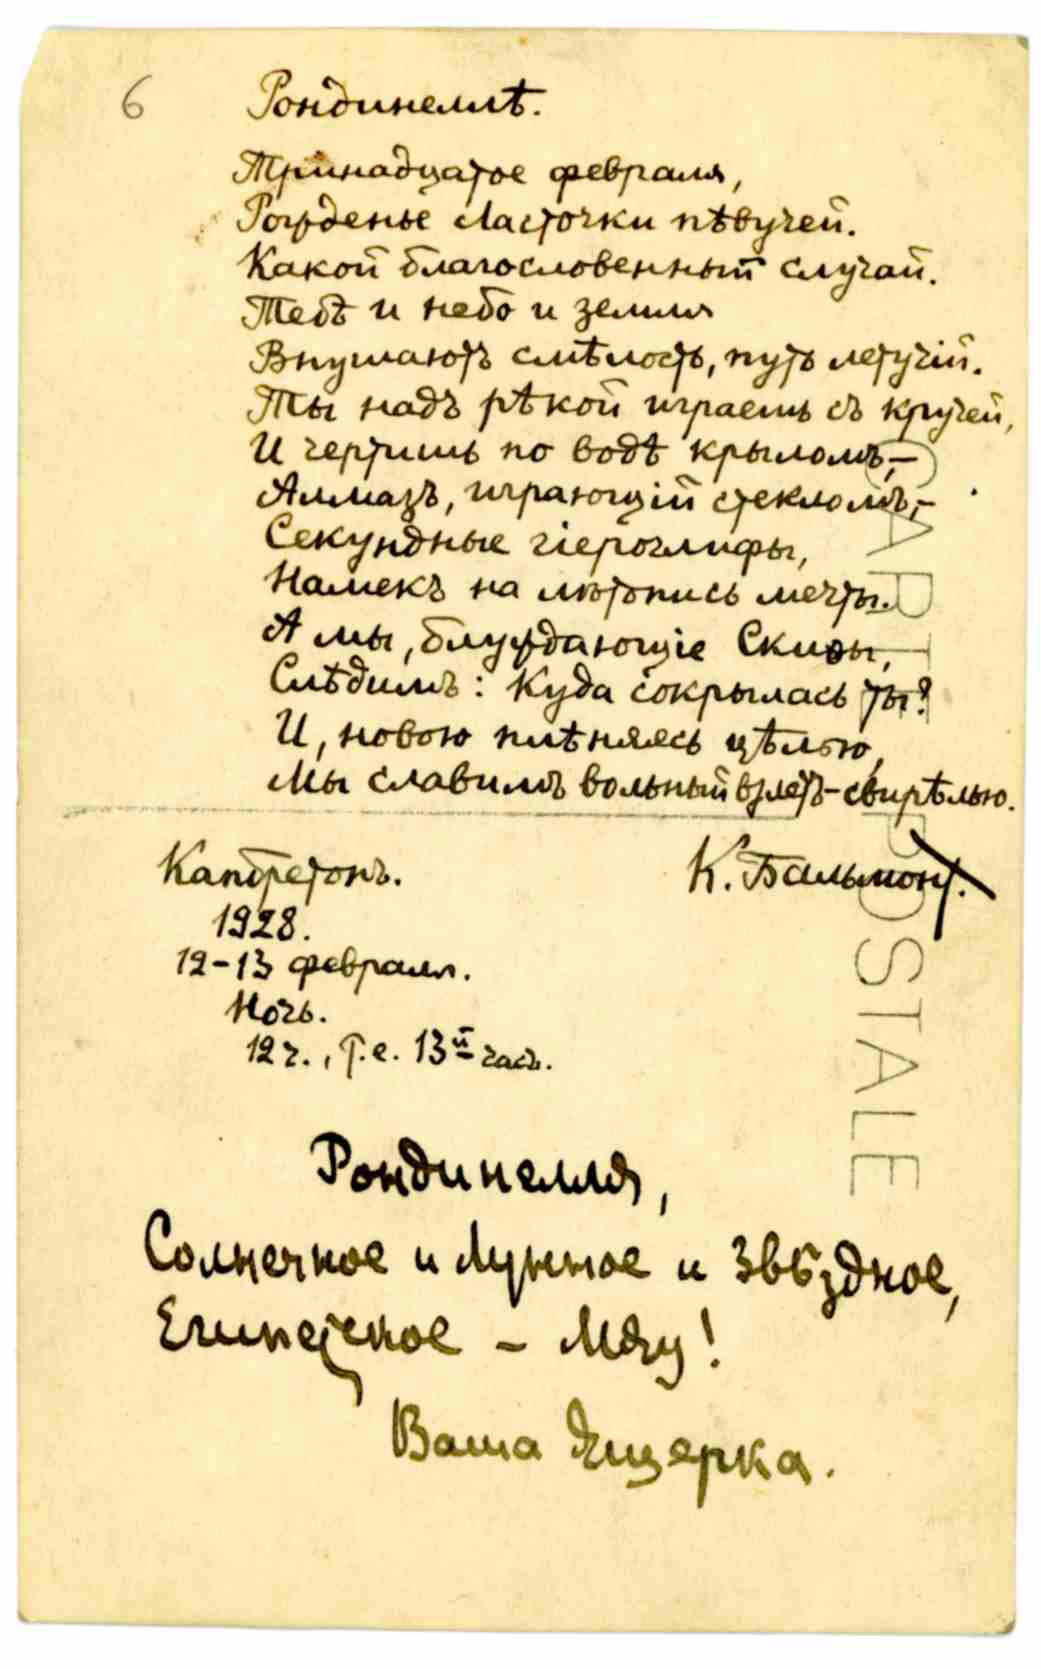 6
Рондинеллѣ.
Тринадцатое февраля,
Рожденье Ласточки пѣвучей.
Какой благословенный случай.
Тебѣ и небо и земля
Внушаютъ смѣлость, путь летучій.
Ты надъ рѣкой играешь съ кручей,
И чертишь по водѣ крыломъ,–
Алмазъ, играющій стекломъ,–
Секундные гіероглифы,
Намекъ на лѣтопись мечты.
А мы, блуждающіе Скиѳы,
Слѣдимъ: Куда сокрылась ты?
И, новою плѣняясь цѣлью,
Мы славимъ вольный взлетъ – свирѣлью.
Капбретонъ.
К. Бальмонт.
1928.
12–13 февраля.
Ночь.
12 ч., т.е. 13й часъ.
Рондинелля,
Солнечное и Лунное и Звѣздное,
Египетское – Мяу!
Ваша Ящерка.
CARTE POSTALE